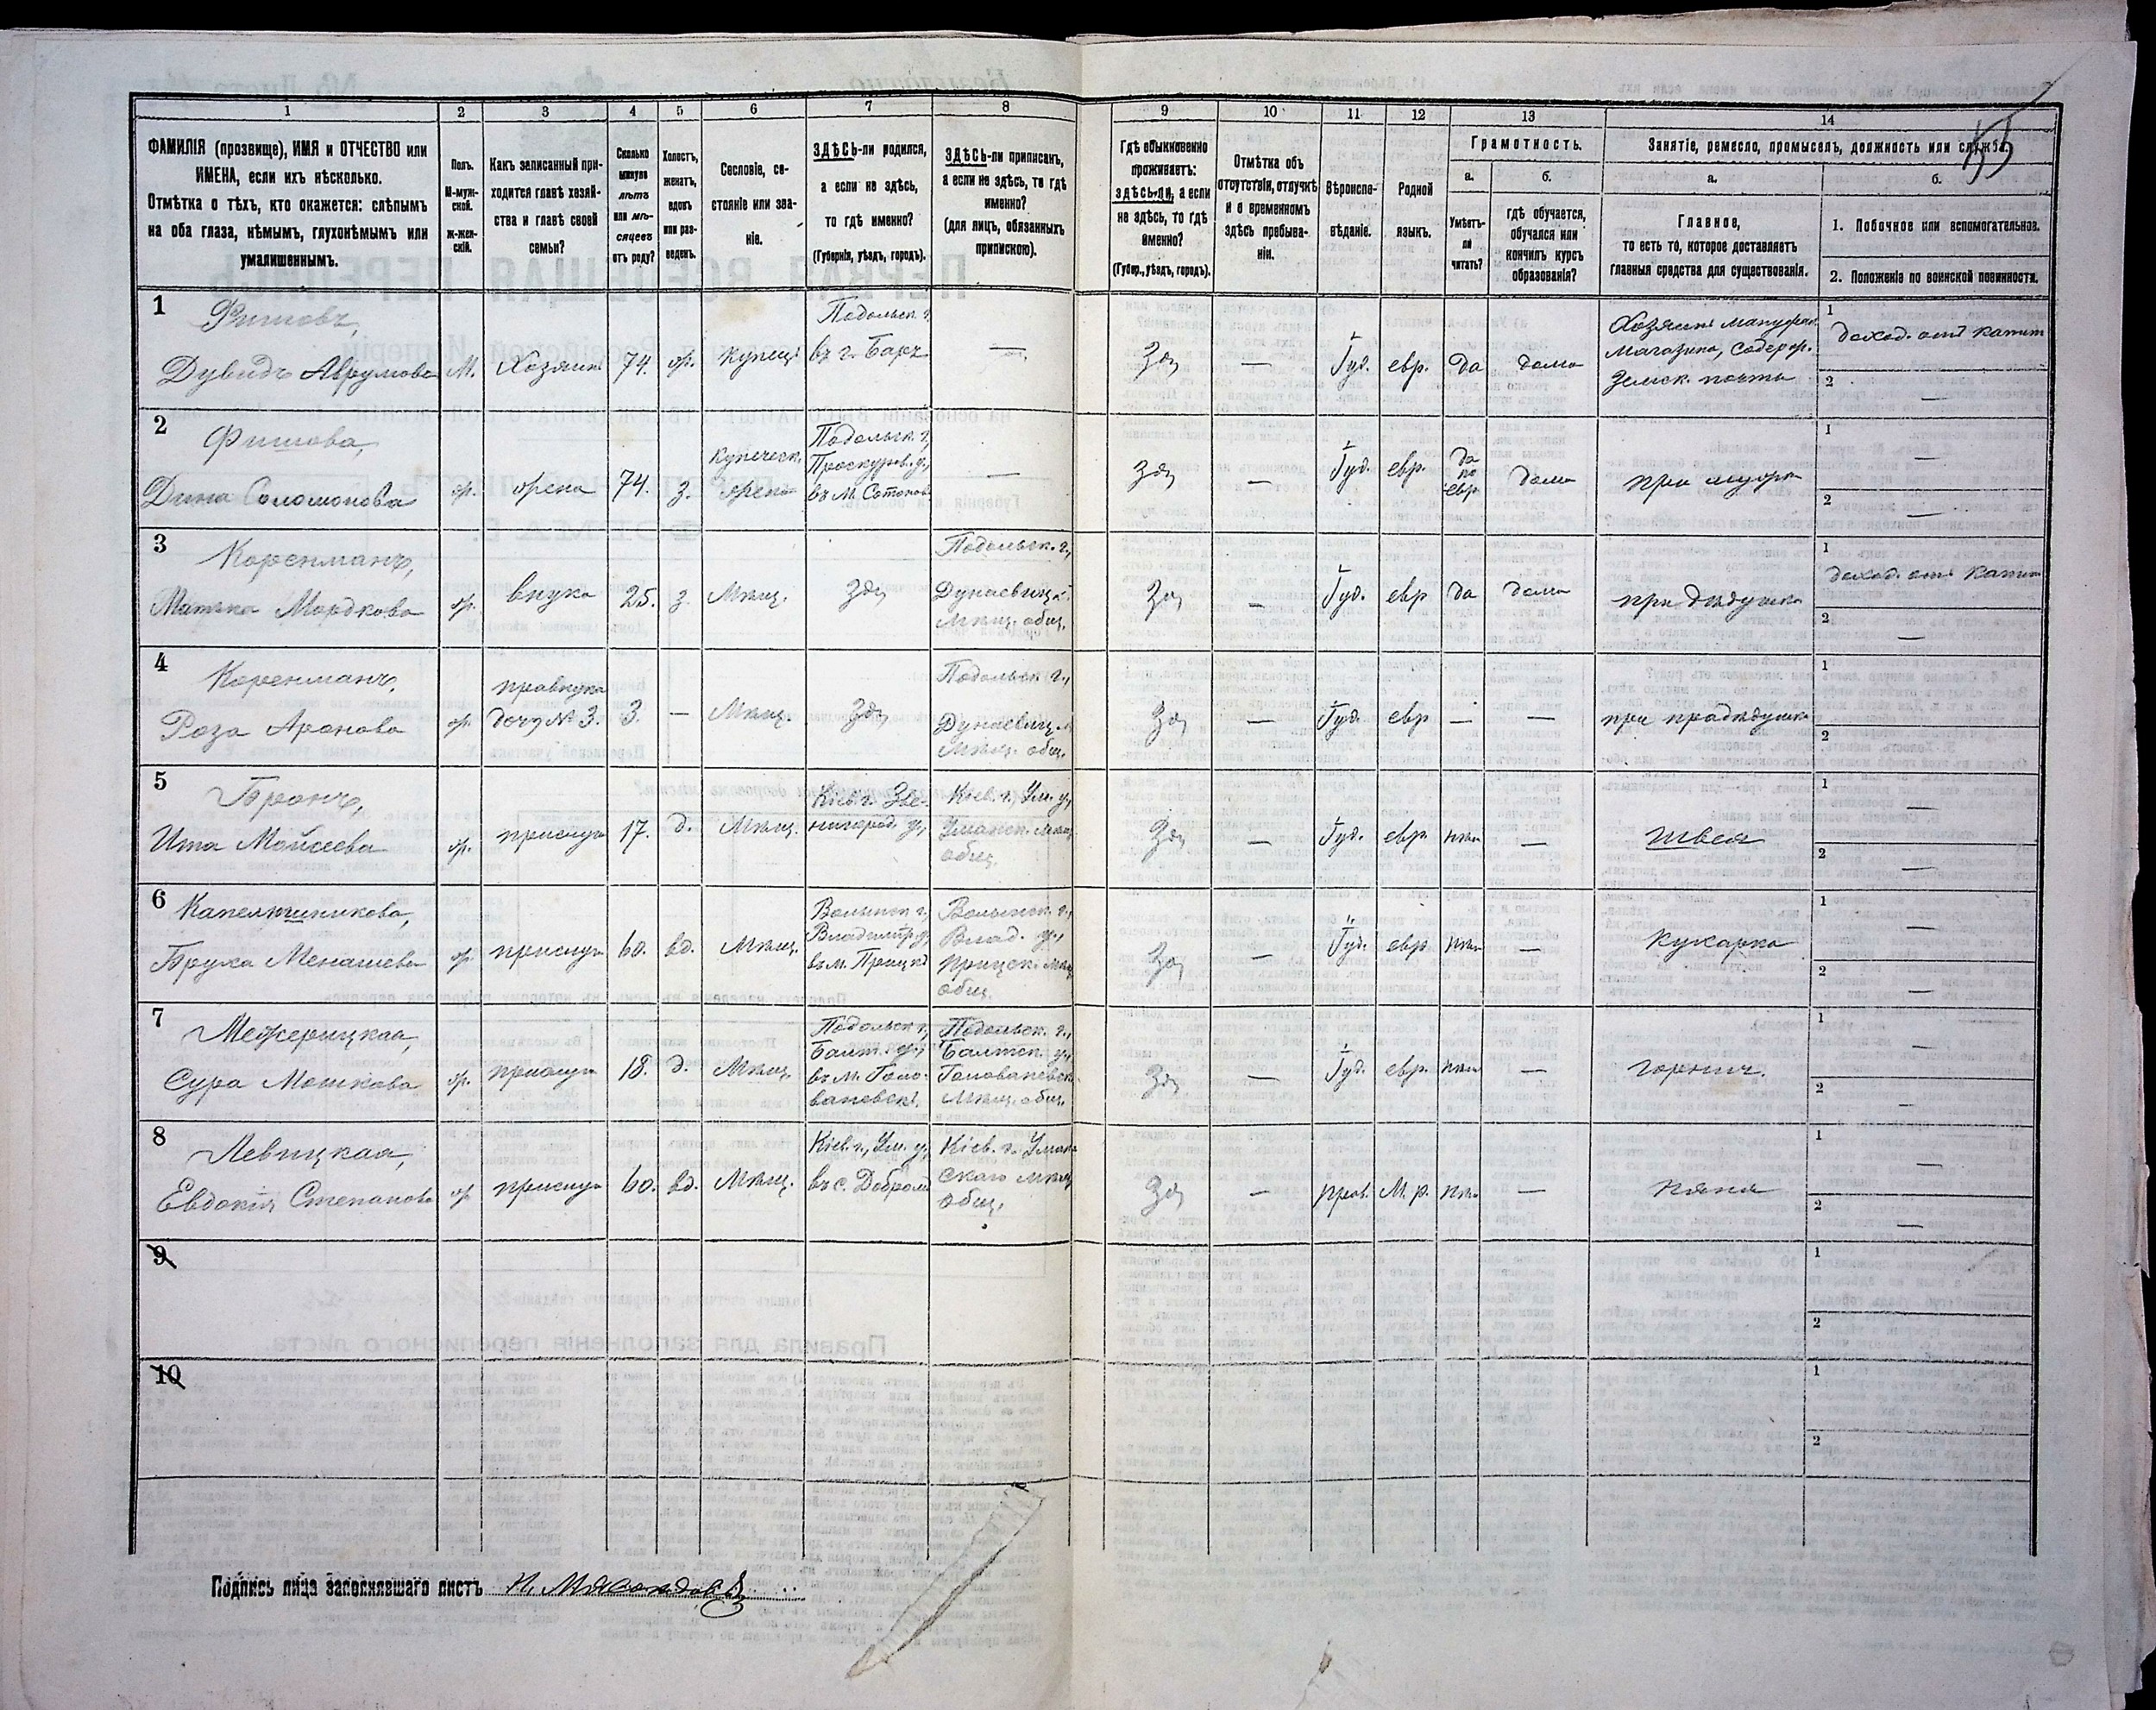 55
1 2 3 4 5 6 7 8 9 10 11 12 13 14
ФАМИЛІЯ (прозвище), ИМЯ и ОТЧЕСТВО или
ИМЕНА, если ихъ нѣсколько.
Отмѣтка о тѣхъ, кто окажется: слѣпымъ
на оба глаза, нѣмымъ, глухонѣмымъ или
умалишеннымъ.
Полъ.
М-муж-
ской.
Ж-жен-
скій.
Какъ записанный при-
ходится главѣ хозяй-
ства и главѣ своей
семьи?
Сколько
минуло
лѣтъ
или мѣ-
сяцевъ
отъ роду?
Холостъ,
женатъ,
вдовъ
или раз-
веденъ.
Сословіе, со-
стояніе или зва-
ніе.
ЗДѢСЬ-ли родился,
а если не здѣсь,
то гдѣ именно?
(Губернія, уѣздъ, городъ).
ЗДѢСЬ-ли приписанъ,
а если не здѣсь, то гдѣ
именно?
(для лицъ, обязанныхъ
припискою).
Гдѣ обыкновенно
проживаетъ:
ЗДѢСЬ-ли, а если
не здѣсь, то гдѣ
именно?
(Губер., уѣздъ, городъ).
Отмѣтка объ
отсутствіи, отлучкѣ
и о временномъ
здѣсь пребыва-
ніи.
Вѣроиспо-
вѣданіе.
Родной
языкъ.
Грамотность.
а.
Умѣетъ-
ли
читать?
б.
гдѣ обучается,
обучался или
кончилъ курсъ
образованія?
Занятіе, ремесло, промыселъ, должность или служба.
а.
Главное,
то есть то, которое доставляетъ
главныя средства для существованія.
б.
1. Побочное или вспомогательное.
2. Положеніе по воинской повинности.
1
Фишовъ,
Дувидъ Аврумовъ
М.
Хозяинъ
74.
ж.
купецъ
Подольск. г.
въ г. Баръ
—
Зд.
—
Іуд.
евр.
да
дома
Хозяинъ мануфак.
магазина, содерж.
Земск. почты
1
доход. отъ капит
2
—
2
Фишова,
Дина Соломонова
ж.
жена
74.
з.
купеческ.
жена
Подольск. г.,
Проскуров. у.,
въ м. Сотанов.
—
Зд.
—
Іуд.
евр.
да
по
евр
дома
при мужѣ
1
—
2
—
3
Коренманъ,
Матька Мордкова
ж.
внука
25.
з.
Мѣщ.
Зд.
Подольск. г.,
Дунаевицк.
Мѣщ. общ.
Зд.
—
Іуд.
евр
да
дома
при дѣдушкѣ
1
доход. отъ капит
2
—
4
Коренманъ,
Роза Аронова
ж.
правнука
дочь № 3.
3.
—
Мѣщ.
Зд.
Подольск. г.,
Дунаевиц.
Мѣщ. общ.
Зд.
—
Іуд.
евр
—
—
при прадѣдушкѣ
1
2
5
Бронъ,
Ита Мойсеева
ж.
прислуга
17.
д.
Мѣщ.
Кіев. г. Зве-
нигород. у.,
Кіев. г., Ум. у.,
Уманск. мѣщ.
общ.
Зд.
—
Іуд.
евр.
нѣтъ
—
швея
1
—
2
—
6
Капельшникова,
Бруха Менашева
ж.
прислуга
60.
вд.
Мѣщ.
Волынск. г.,
Владимір. у.,
Волынск. г.,
Влад. у.,
общ.
Зд.
—
Іуд.
евр
нѣтъ
—
Кухарка
1
—
2
—
7
Межерицкая,
Сура Мошкова
ж.
прислуга
18.
д.
Мѣщ.
Подольск. г.,
Балт. у.,
въ м. Голо-
ваневскѣ.
Подольск. г.,
Балтск. у.,
Голованевск.
Мѣщ. общ.
Зд.
—
Іуд.
евр.
нѣтъ
—
горнич.
1
—
2
—
8
Левицкая,
Евдокія Степанова
ж
прислуга
60.
вд.
Мѣщ.
Кіев. г., Ум. у.,
въ с. Добровод
Кіев. г. Уман
скаго мѣщ.
общ.
Зд.
—
прав.
М. р.
нѣтъ
—
няня
1
—
2
—
9
1
2
10
1
2
Подпись лица заполнявшаго листъ